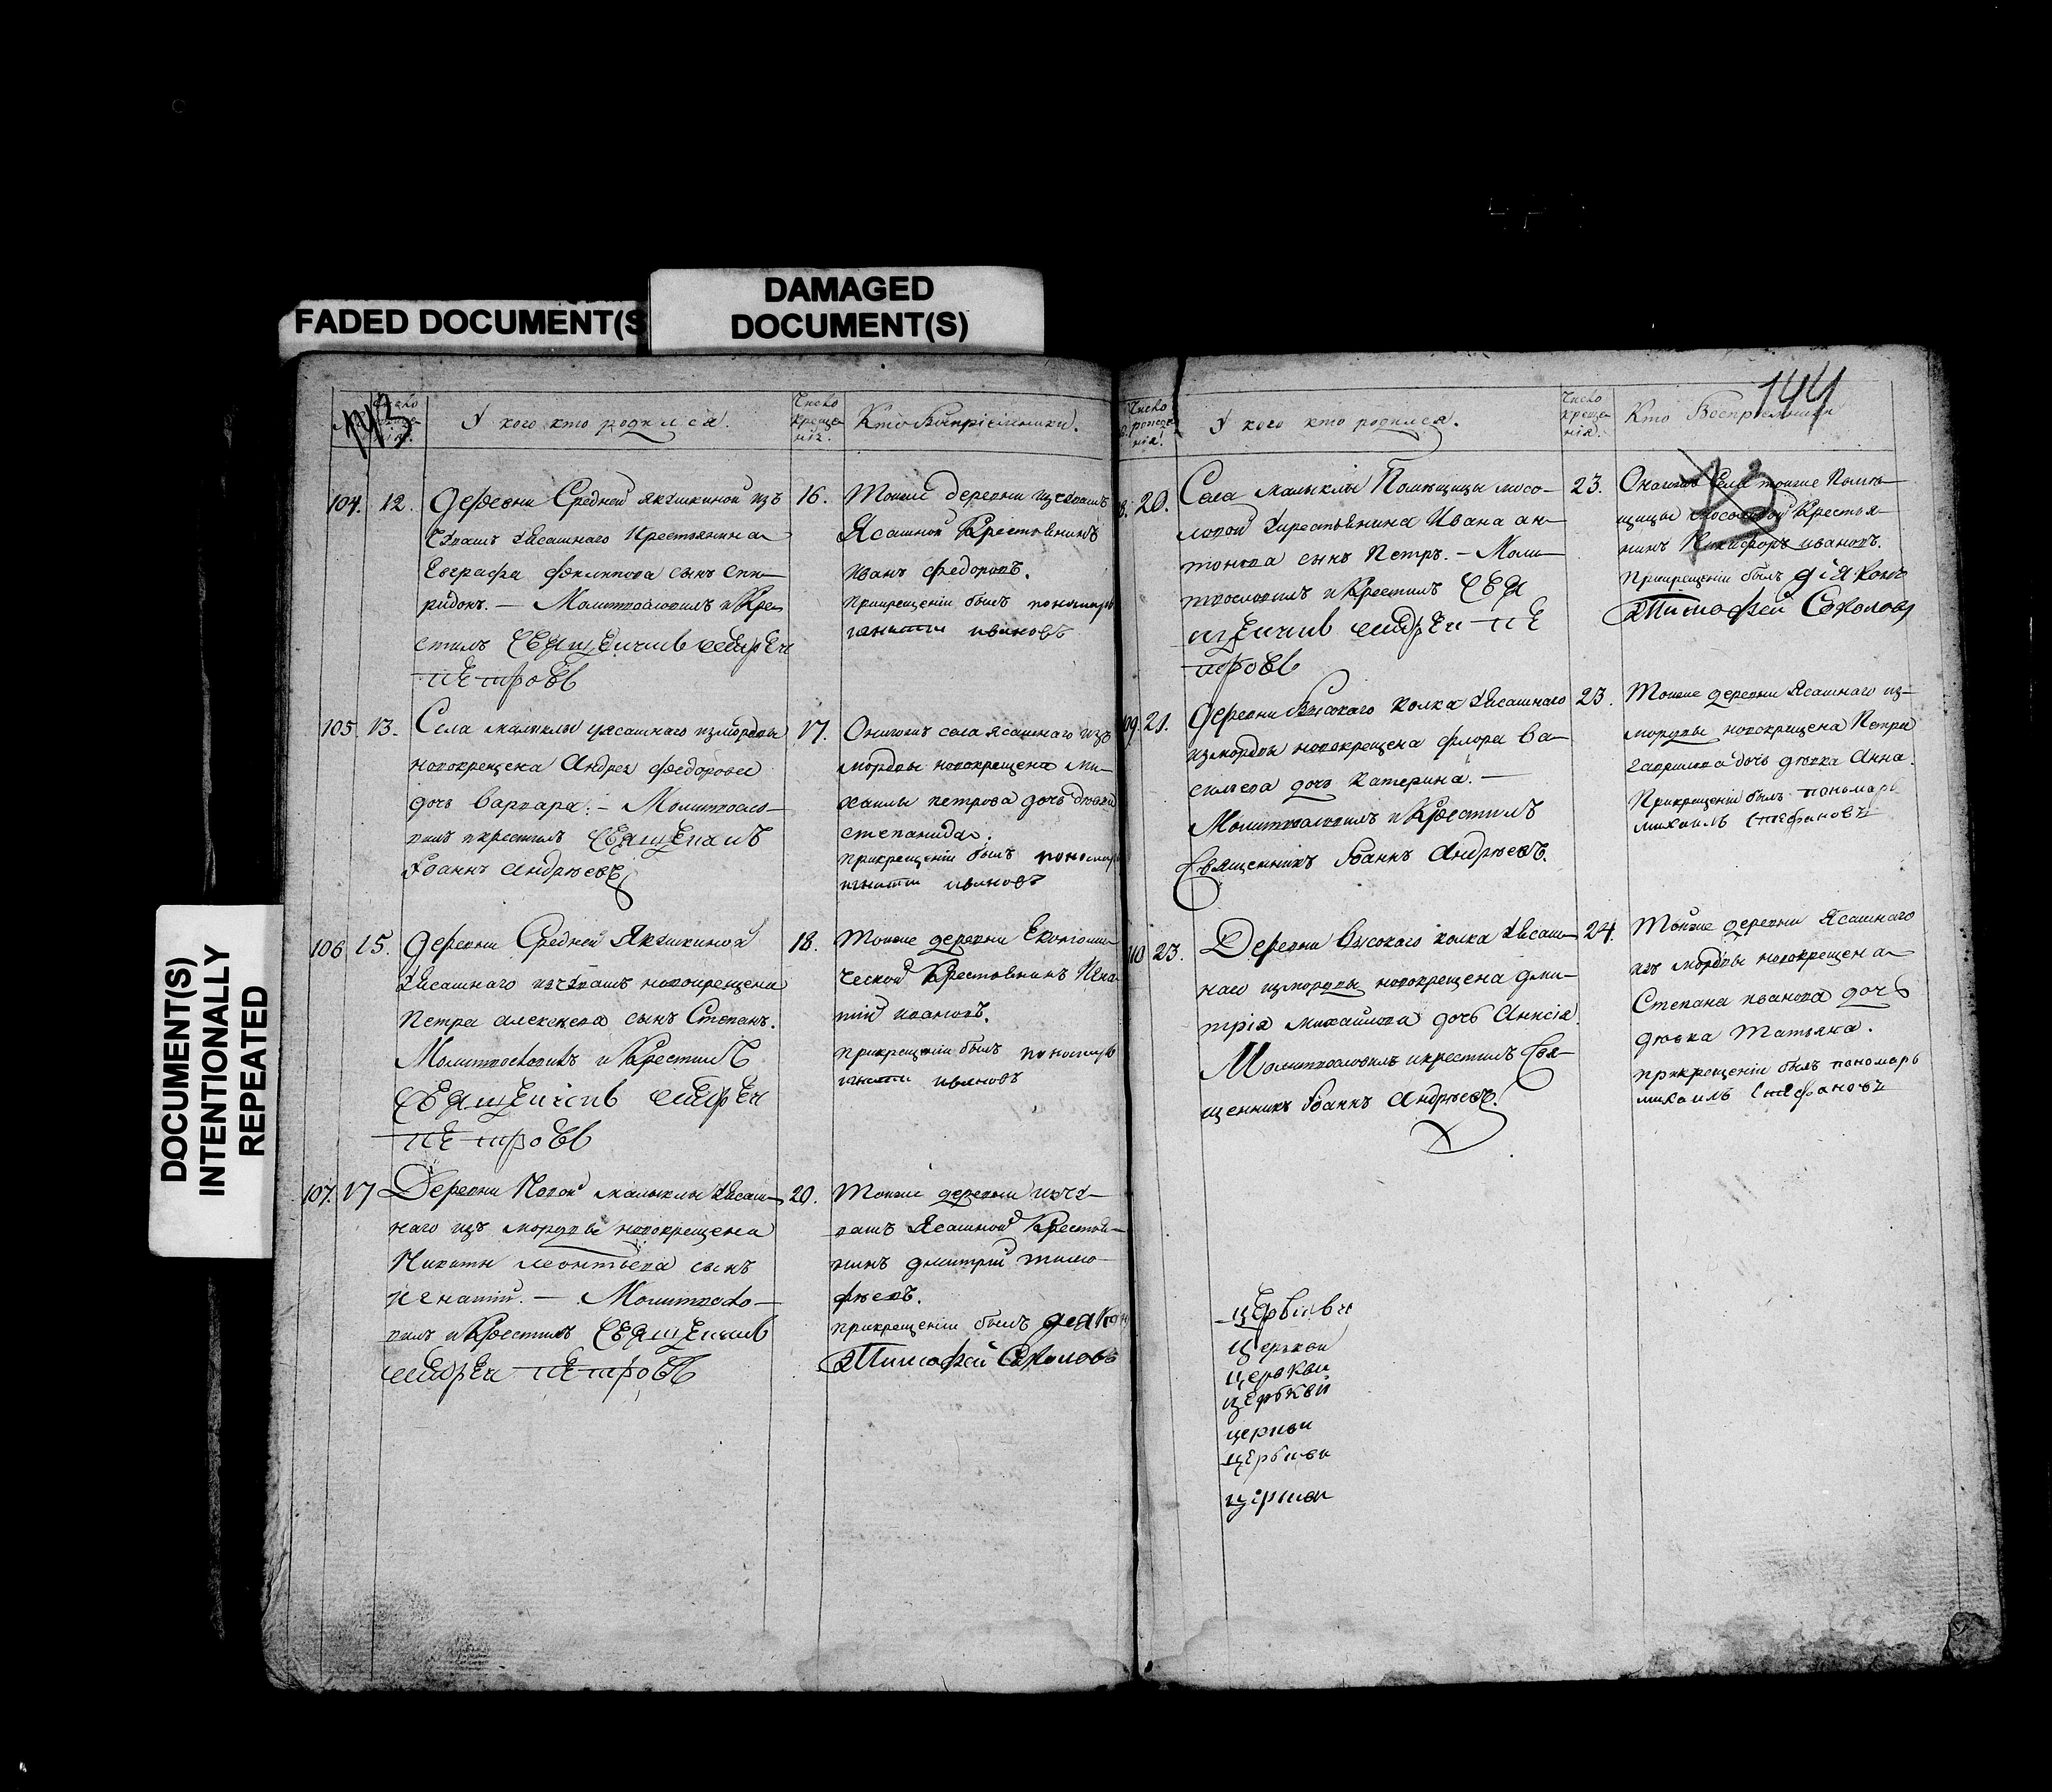 FADED DOCUMENT(S
DAMAGED
DOCUMENT(S)
DOCUMENT(S)
INTENTIONALLY
REPEATED
143
У кого кто родился.
Число
креще
нія.
Кто Воспріемники.
104. 12. Деревни Средней Якушкиной изъ
Чувашъ Ясашнаго Крестьянина
Евграфа Филиппова сынъ Спи-
ридонъ. — Молитвословилъ и Кре
стилъ священникъ андрей
петровъ
16. Тойже деревни изчувашъ
Ясашной Крестьянинъ
Иванъ Федоровъ.
Прикрещеніи былъ пономарь
игнати ивановъ
105. 13. Села малыклы ясашнаго измордвы
новокрещена Андрея Федорова
дочь Варвара. — Молитвосло-
вилъ икрестилъ священникъ
Іоаннъ Андрѣевъ
17. Оногожъ села ясашнаго изъ
мордвы новокрещена ми-
хаилы петрова дочь девка
степанида.
Прикрещеніи былъ пономарь
игнати ивановъ
106. 15. Деревни Средней Якушкиной
Ясашнаго изчувашъ новокрещена
Петра алексеева сынъ Степанъ.
Молитвословилъ и Крестилъ
священникъ андрей
петровъ
18. Тойже деревни Економи-
ческой Крестьянинъ Игна-
тій ивановъ.
прикрещеніи былъ пономарь
игнати ивановъ
107. 17 Деревни Новой малыклы Ясаш-
наго изъ мордвы новокрещена
Никиты леонтьева сынъ
игнатій. — Молитвосло-
вилъ и Крестилъ священникъ
андрей петровъ
20. Тойже деревни изчу-
вашъ Ясашной Крестья-
нинъ дмитрій тимо-
фѣевъ.
прикрещеніи былъ диякон
Тимофей Соколовъ
144
Число
рожде
нія.
У кого кто родился.
Число
креще
нія.
Кто Воспріемники
8. 20. Села малыклы Помѣщицы мосо-
ловой Крестьянина Ивана ан-
тонова сынъ Петръ. — Моли-
твословилъ и Крестилъ свя
щенникъ андрей пе
тровъ
23. Оногожъ Села тоиже Помѣ-
щицы мосоловой Крестья-
нинъ Никифоръ ивановъ.
Прикрещеніи былъ діяконъ
Тимофей Соколовъ
109. 21. Деревни Высокаго колка Ясашнаго
измордвы новокрещена флора ва-
сильева дочь катерина. —
Молитвословилъ и Крестилъ
Священникъ Іоаннъ Андрѣевъ.
23. Тойже деревни Ясашнаго из-
мордвы новокрещена Петра
гаврилова дочь девка Анна.
Прикрещеніи былъ пономарь
михаилъ стефановъ
110 23. Деревни Высокаго колка Ясаш-
наго измордвы новокрещена дми-
трія михайлова дочь Анисія.
Молитвословилъ икрестилъ Свя-
щенникъ Іоаннъ Андрѣевъ.
24. Тойже деревни Ясашнаго
изъ мордвы новокрещена
Степана иванова дочь
девка татьяна.
прикрещеніи былъ пономарь
михаилъ стефановъ
церькви
церькви
церькви